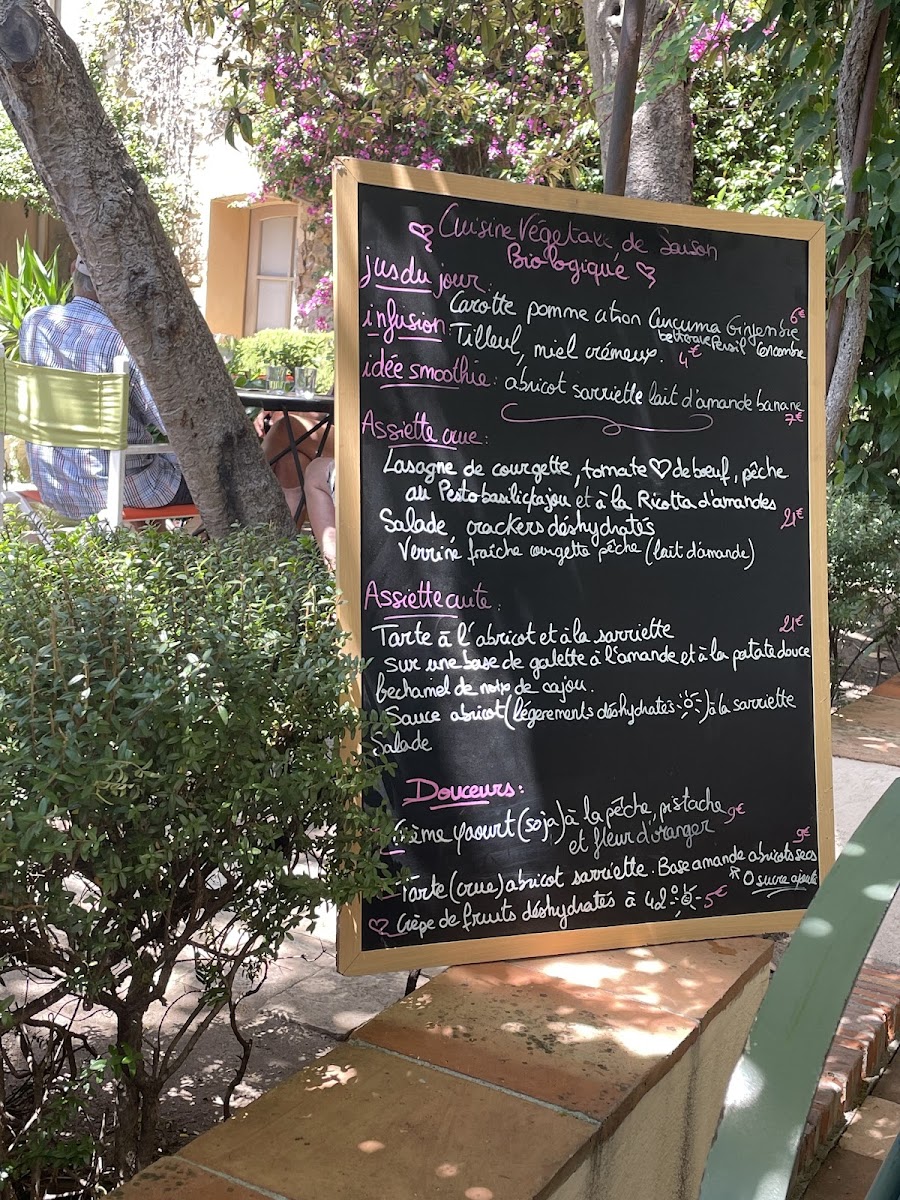 Cuisine Végétale de Saison
Biologique
jus du jour:
Carotte pomme citron Curcuma Gingembre 6€
betterave Persil Concombre
infusion: Tilleul, miel crémeux. 4€
idée smoothie: abricot sarriette lait d'amande banane
7€
Assiette crue:
Lasagne de courgette, tomate ♡ de bœuf, pêche
au Pesto basilic cajou et à la Ricotta d'amandes
Salade, crackers déshydratés 21€
Verrine fraîche courgette pêche (lait d'amande)
Assiette cuite:
Tarte à l'abricot et à la sarriette 21€
sur une base de galette à l'amande et à la patate douce
bechamel de noix de cajou.
Sauce abricot (légerements déshydratés) à la sarriette
Salade
Douceurs:
- Crème yaourt (soja) à la pêche, pistache 9€
et fleur d'oranger
- Tarte (crue) abricot sarriette. Base amande abricots secs 9€
0 sucre ajouté
Crèpe de fruits déshydratés à 42° - 5€